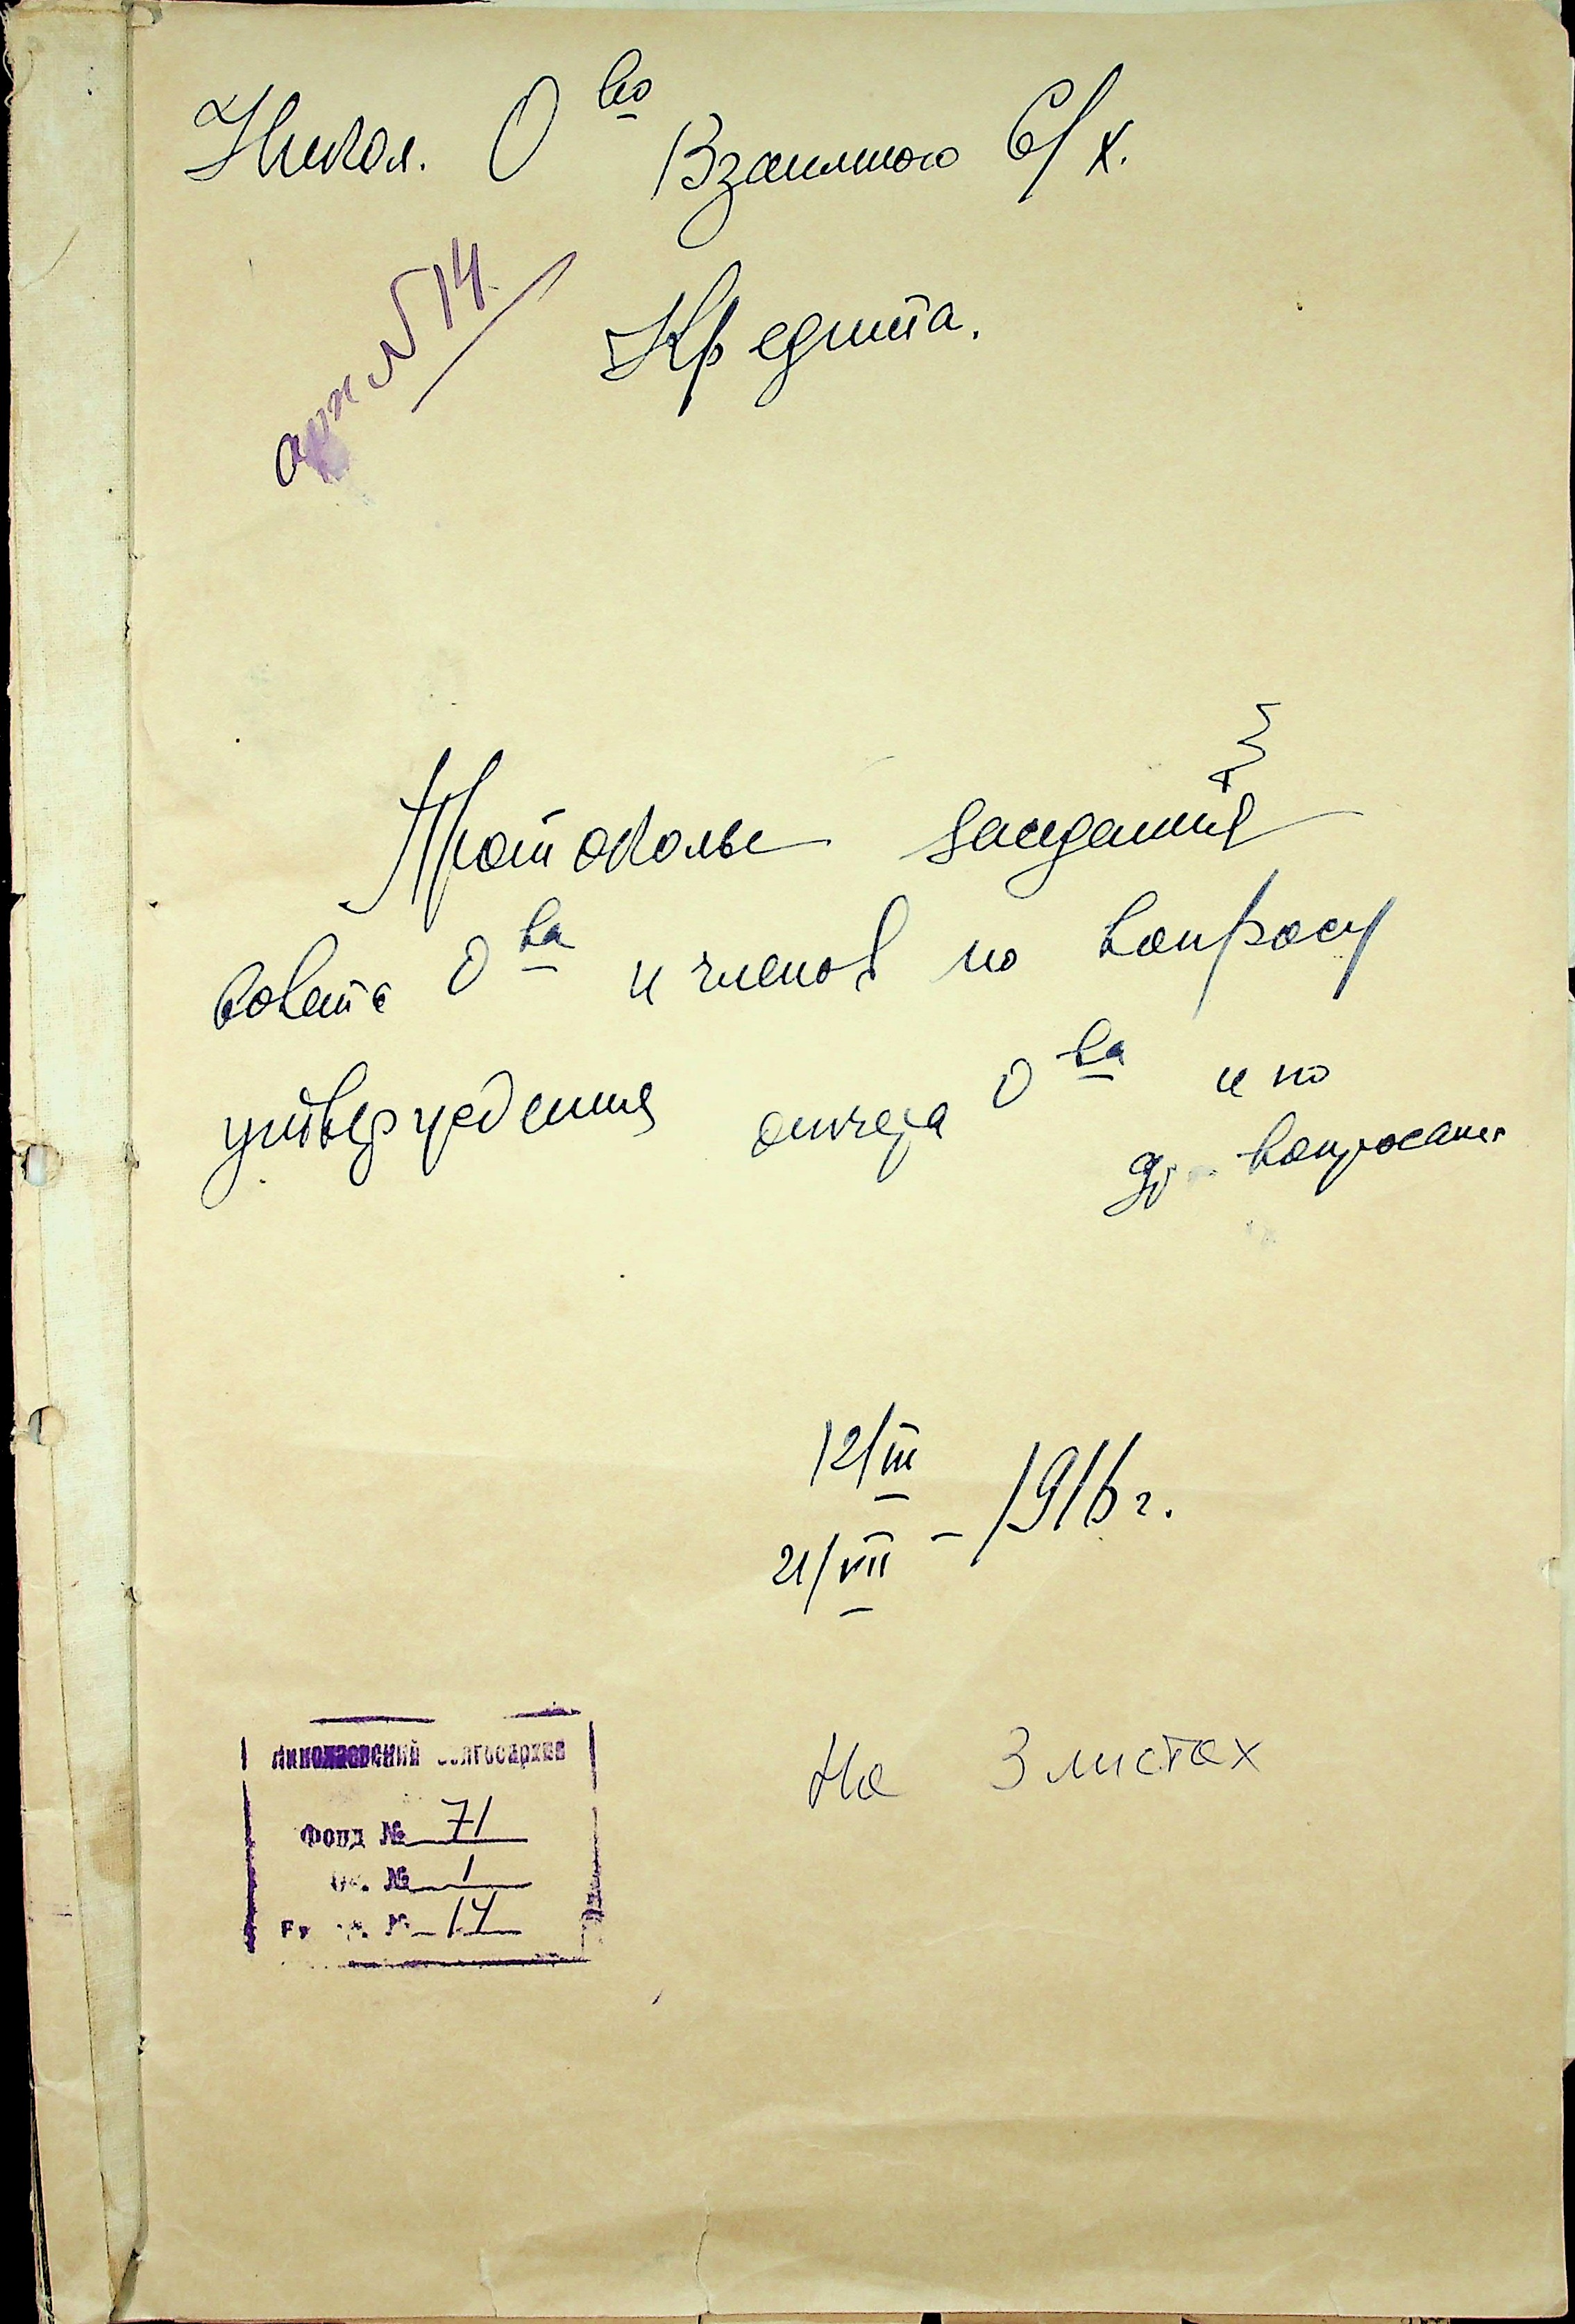 Никол. О во Взаимного С/х.
Кредита.
арх № 14
Протоколы заседания
совета О ва и членов по вопросу
утверждения отчета О ва и по
др. вопросам
12/III
21/VII – 1916 г.
Николаевский облгосархив
Фонд № 71
Оп. № 1
Ед. хр. № 14
На 3 листах